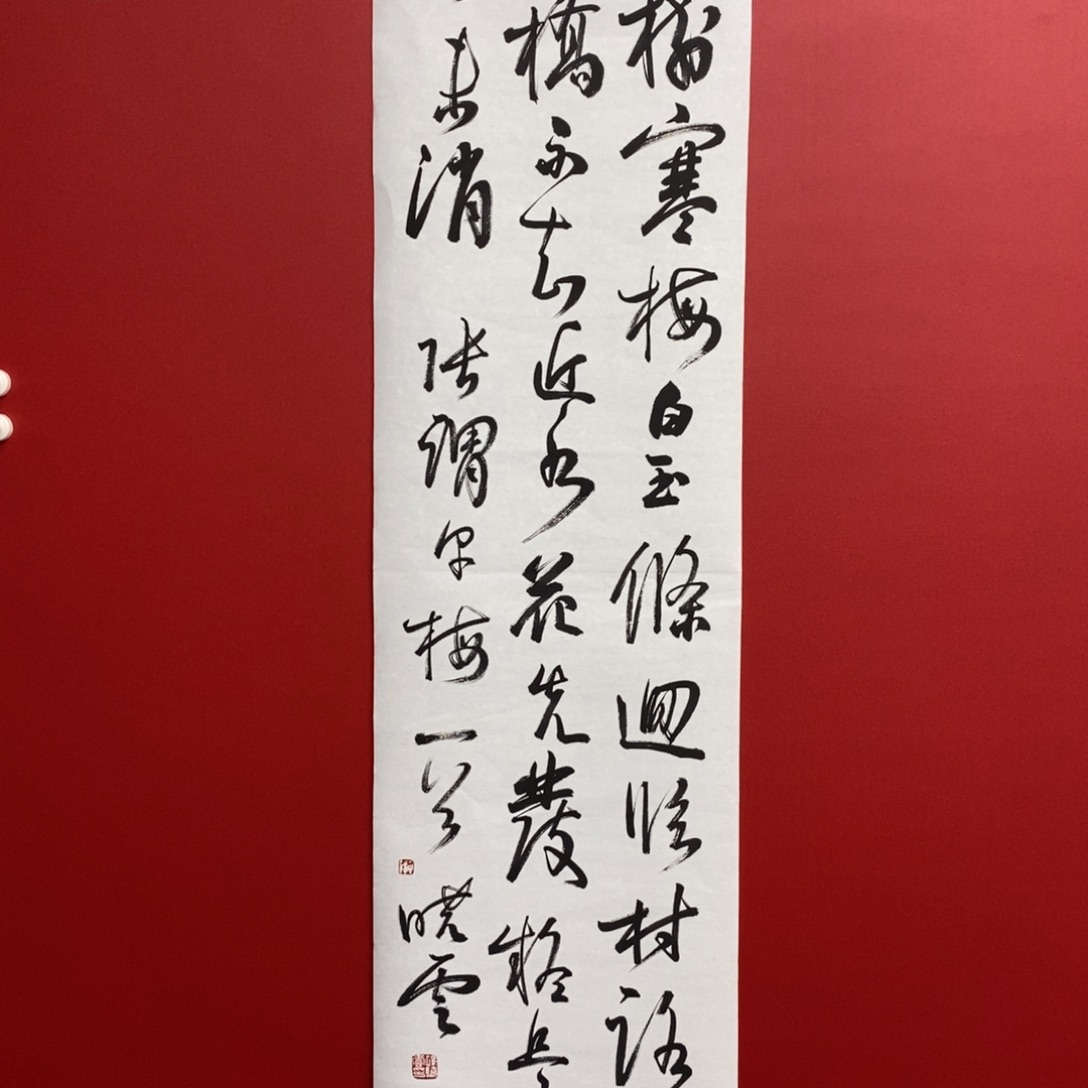 樹寒梅白玉條迴臨村路
橋不知近水花先發疑是
未消 張謂早梅一首 曉雲